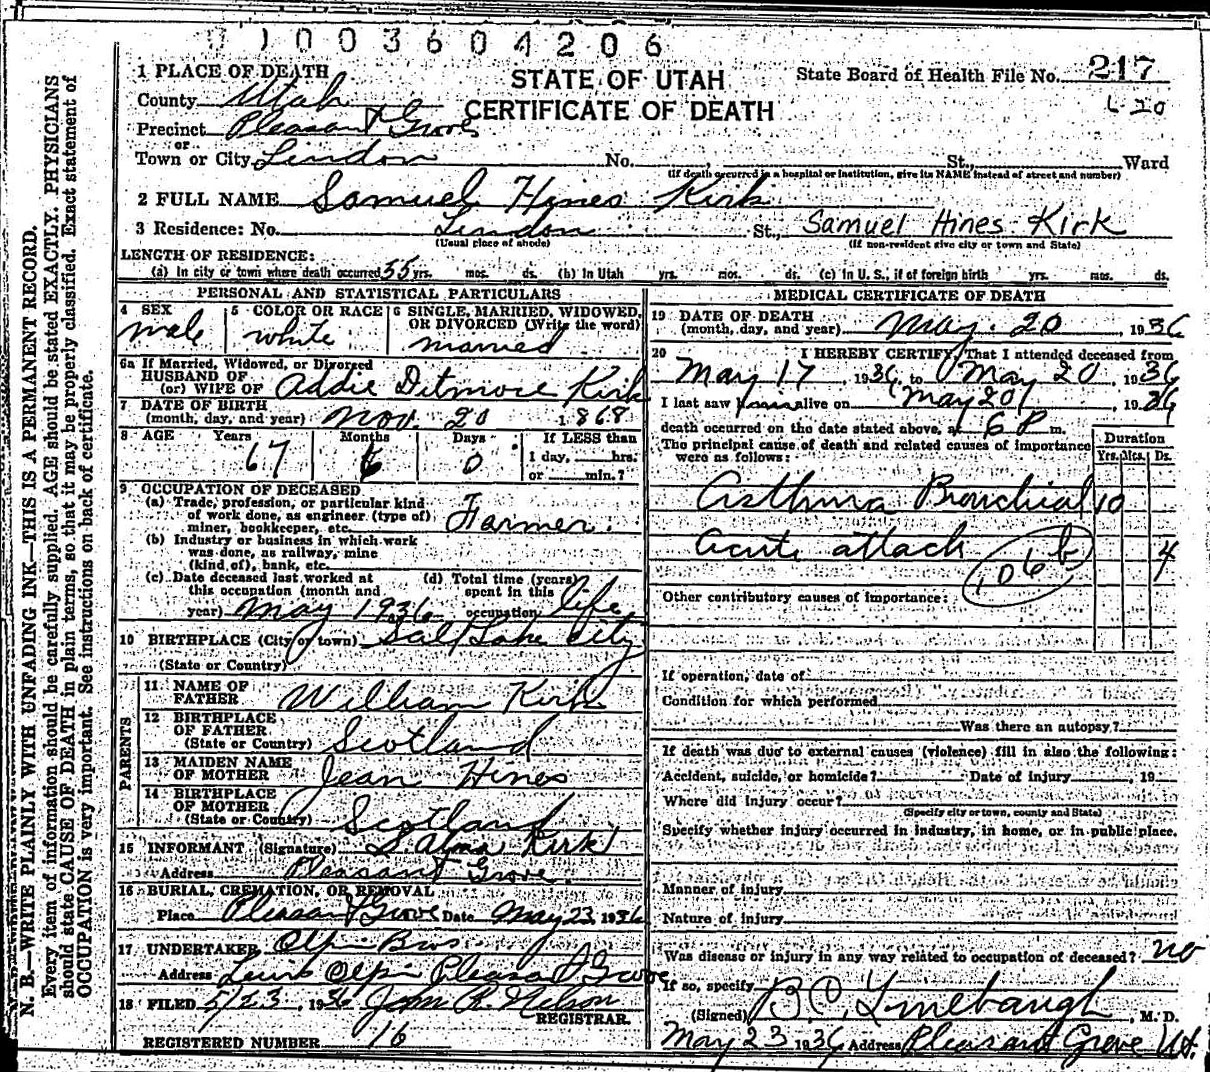 1003604206
STATE OF UTAH
CERTIFICATE OF DEATH
State Board of Health File No. 217
6-20
1 PLACE OF DEATH
County Utah
Precinct Pleasant Grove
or
Town or City Lindon No. , St., Ward
(If death occurred in a hospital or institution, give its NAME instead of street and number)
2 FULL NAME Samuel Hines Kirk
3 Residence: No. Lindon St., Samuel Hines Kirk
(Usual place of abode) (If non-resident give city or town and State)
LENGTH OF RESIDENCE:
(a) In city or town where death occurred 55 yrs. mos. ds. (b) In Utah yrs. mos. ds. (c) In U. S., if of foreign birth yrs. mos. ds.
PERSONAL AND STATISTICAL PARTICULARS
4 SEX male
5 COLOR OR RACE white
6 SINGLE, MARRIED, WIDOWED, OR DIVORCED (Write the word) married
6a If Married, Widowed, or Divorced
HUSBAND OF
(or) WIFE OF Addie Ditmore Kirk
7 DATE OF BIRTH
(month, day, and year) Nov. 20 1868
8 AGE Years Months Days If LESS than
67 6 0 1 day, hrs.
or min.?
9 OCCUPATION OF DECEASED
(a) Trade, profession, or particular kind
of work done, as engineer (type of)
miner, bookkeeper, etc. Farmer.
(b) Industry or business in which work
was done, as railway, mine
(kind of), bank, etc.
(c) Date deceased last worked at
this occupation (month and
year) May 1936
(d) Total time (years)
spent in this
occupation life
10 BIRTHPLACE (City or town) Salt Lake City
(State or Country)
PARENTS
11 NAME OF
FATHER William Kirk
12 BIRTHPLACE
OF FATHER
(State or Country) Scotland
13 MAIDEN NAME
OF MOTHER Jean Hines
14 BIRTHPLACE
OF MOTHER
(State or Country) Scotland
15 INFORMANT (Signature) S. Alma Kirk
Address Pleasant Grove.
16 BURIAL, CREMATION, OR REMOVAL
Place Pleasant Grove Date May 23 1936
17 UNDERTAKER Olpin Bros
Address Lewis Olpin Pleasant Grove
18 FILED 5/23, 1936 John R. Nelson
REGISTRAR.
REGISTERED NUMBER 16
MEDICAL CERTIFICATE OF DEATH
19 DATE OF DEATH
(month, day, and year) May. 20, 1936
20 I HEREBY CERTIFY, That I attended deceased from
May 17, 1936 to May 20, 1936
I last saw him alive on May 20, 1936
death occurred on the date stated above, at 6 P m.
The principal cause of death and related causes of importance
were as follows:
Duration
Yrs. Mos. Ds.
Asthma Bronchial 10
Acute attack 4
106b
Other contributory causes of importance:
If operation, date of
Condition for which performed
Was there an autopsy?
If death was due to external causes (violence) fill in also the following:
Accident, suicide, or homicide? Date of injury , 19
Where did injury occur?
(Specify city or town, county and State)
Specify whether injury occurred in industry, in home, or in public place.
Manner of injury
Nature of injury
Was disease or injury in any way related to occupation of deceased? no
If so, specify
(Signed) B. C. Linebaugh, M. D.
May 23 1936 Address Pleasant Grove Ut.
N. B.—WRITE PLAINLY WITH UNFADING INK—THIS IS A PERMANENT RECORD.
Every item of information should be carefully supplied. AGE should be stated EXACTLY. PHYSICIANS
should state CAUSE OF DEATH in plain terms, so that it may be properly classified. Exact statement of
OCCUPATION is very important. See instructions on back of certificate.